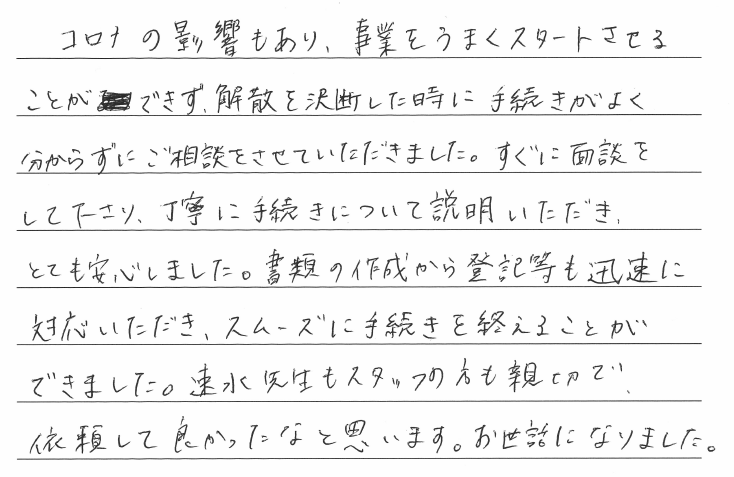 コロナの影響もあり、事業をうまくスタートさせる
ことができず、解散を決断した時に手続きがよく
分からずにご相談をさせていただきました。すぐに面談を
して下さり、丁寧に手続きについて説明いただき、
とても安心しました。書類の作成から登記等も迅速に
対応いただき、スムーズに手続きを終えることが
できました。速水先生もスタッフの方も親切で、
依頼して良かったなと思います。お世話になりました。